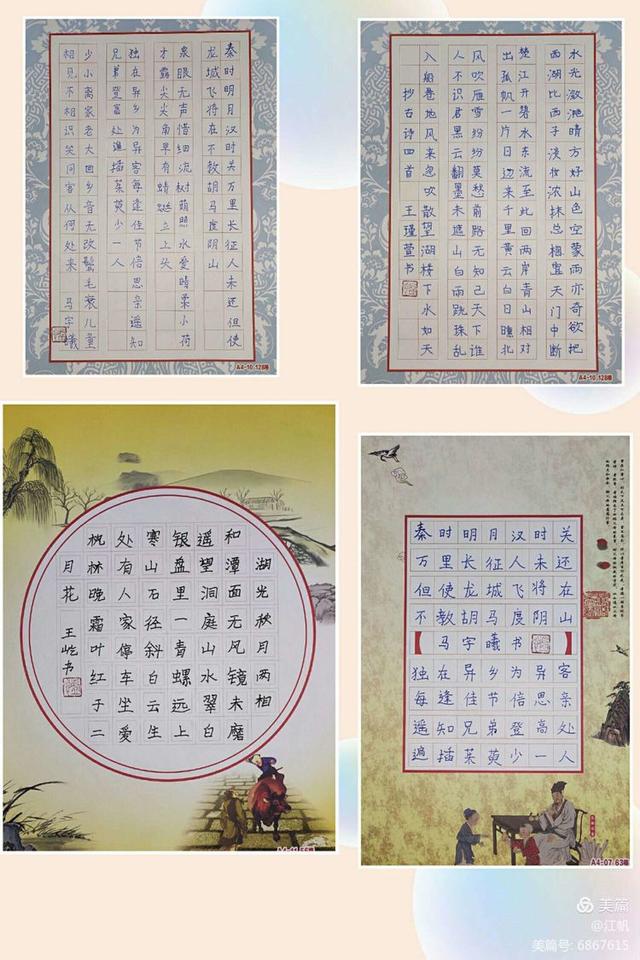 秦时明月汉时关万里长征人未还但使
龙城飞将在不教胡马度阴山
泉眼无声惜细流树荫照水爱晴柔小荷
才露尖尖角早有蜻蜓立上头
独在异乡为异客每逢佳节倍思亲遥知
兄弟登高处遍插茱萸少一人
少小离家老大回乡音无改鬓毛衰儿童
相见不相识笑问客从何处来 马宇曦
A4-10.128格
水光潋滟晴方好山色空蒙雨亦奇欲把
西湖比西子淡妆浓抹总相宜天门中断
楚江开碧水东流至此回两岸青山相对
出孤帆一片日边来千里黄云白日曛北
风吹雁雪纷纷莫愁前路无知己天下谁
人不识君黑云翻墨未遮山白雨跳珠乱
入船卷地风来忽吹散望湖楼下水如天
抄古诗四首 王瑾萱书
A4-10.128格
湖光秋月两相
和潭面无风镜未磨
遥望洞庭山水翠白
银盘里一青螺远上
寒山石径斜白云生
处有人家停车坐爱
枫林晚霜叶红于二
月花 王屹书
秦时明月汉时关
万里长征人未还
但使龙城飞将在
不教胡马度阴山
【马宇曦书】
独在异乡为异客
每逢佳节倍思亲
遥知兄弟登高处
遍插茱萸少一人
A4-07.63格
美篇
@江帆
美篇号: 6867615